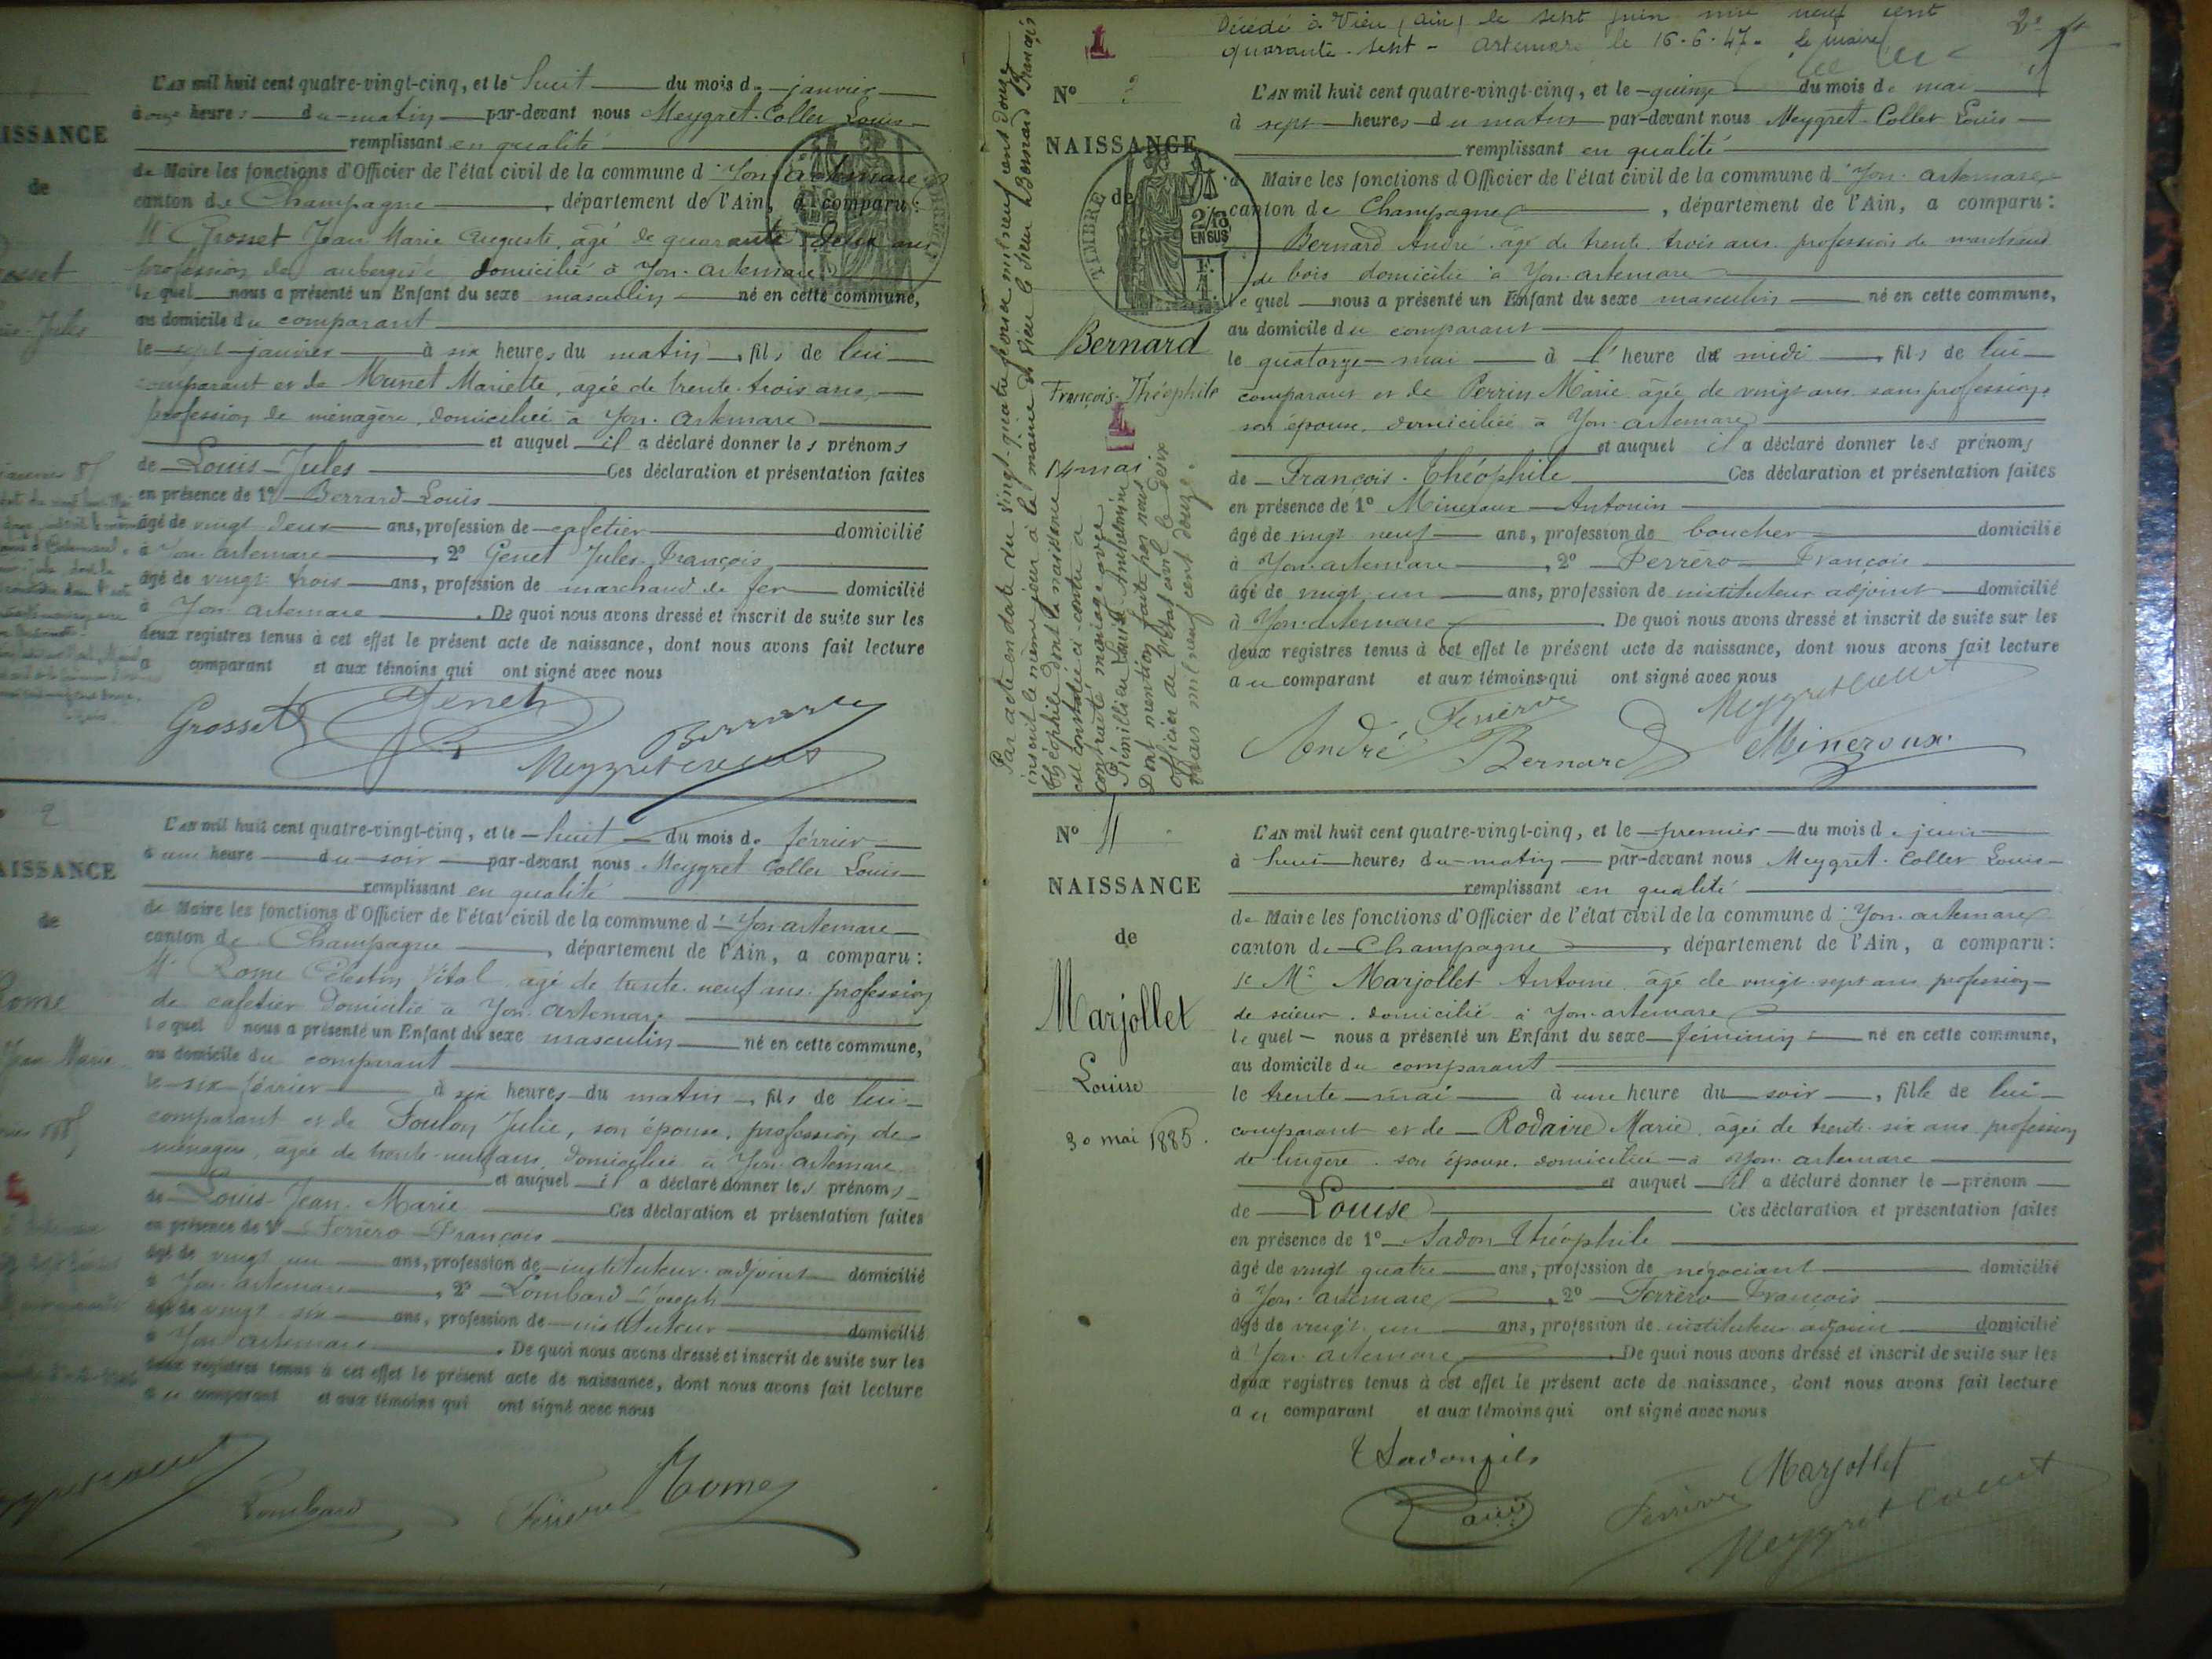 ISSANCE
de
L'AN mil huit cent quatre-vingt-cinq, et le huit du mois de janvier
à onze heures du matin par-devant nous Meygret-Collet Louis
remplissant en qualité
de Maire les fonctions d'Officier de l'état civil de la commune d'Yon-artemare
canton de Champagne, département de l'Ain, a comparu :
Mr Grosset Jean Marie Auguste, agé de quarante deux ans
profession de aubergiste domicilié à Yon-artemare
le quel nous a présenté un Enfant du sexe masculin né en cette commune,
au domicile du comparant
le sept janvier à six heures du matin, fils de lui
comparant et de Munet Mariette, agée de trente-trois ans,
profession de ménagère, domiciliée à Yon-Artemare
et auquel il a déclaré donner les prénoms
de Louis-Jules Ces déclaration et présentation faites
en présence de 1° Berrard Louis
âgé de vingt deux ans, profession de cafetier domicilié
à Yon-artemare, 2° Genet Jules-François
âgé de vingt-trois ans, profession de marchand de fer domicilié
à Yon-artemare. De quoi nous avons dressé et inscrit de suite sur les
deux registres tenus à cet effet le présent acte de naissance, dont nous avons fait lecture
a comparant et aux témoins qui ont signé avec nous
Grosset Genet
Berrard
2
AISSANCE
de
Rome
Jean Marie
L'AN mil huit cent quatre-vingt-cinq, et le huit du mois de février
à une heure du soir par-devant nous Meygret-Collet Louis
remplissant en qualité
de Maire les fonctions d'Officier de l'état civil de la commune d'Yon-artemare
canton de Champagne, département de l'Ain, a comparu :
Mr Rome Célestin Vital, agé de trente-neuf ans profession
de cafetier domicilié à Yon-Artemare
lequel nous a présenté un Enfant du sexe masculin né en cette commune,
au domicile du comparant
le six février à six heures du matin, fils de lui
comparant et de Foulon Julie, son épouse, profession de
ménagère, agée de trente-neuf ans, domiciliée à Yon-artemare
et auquel il a déclaré donner les prénoms
de Louis-Jean-Marie Ces déclaration et présentation faites
en présence de 1° Ferréro François
âgé de vingt un ans, profession de instituteur-adjoint domicilié
à Yon-artemare, 2° Lombard Joseph
âgé de vingt-six ans, profession de instituteur domicilié
à Yon-artemare. De quoi nous avons dressé et inscrit de suite sur les
deux registres tenus à cet effet le présent acte de naissance, dont nous avons fait lecture
au comparant et aux témoins qui ont signé avec nous
Lombard Rome
Décédé à Vieu (Ain) le sept juin mil neuf cent
quarante-sept - Artemare le 16-6-47- le maire
1
N° 3
NAISSANCE
de
TIMBRE
2/10
EN SUS
Bernard
François-Théophile
1
14 mai
Par acte en date du vingt-quatre février mil neuf cent douze
inscrit le même jour à la mairie de Vieu le sieur Bernard François
Théophile dont la naissance
est constatée ci-contre a
contracté mariage avec
Louise
Dont mention faite par nous
officier de l'état civil le deux
mars mil neuf cent douze.
L'AN mil huit cent quatre-vingt-cinq, et le quinze du mois de mai
à sept heures du matin par-devant nous Meygret-Collet Louis
remplissant en qualité
de Maire les fonctions d'Officier de l'état civil de la commune d'Yon-artemare
canton de Champagne, département de l'Ain, a comparu :
Bernard André agé de trente trois ans profession de marchand
de bois domicilié à Yon-artemare
le quel nous a présenté un Enfant du sexe masculin né en cette commune,
au domicile du comparant
le quatorze mai à l'heure de midi, fils de lui
comparant et de Perrin Marie agée de vingt ans sans profession,
son épouse, domiciliée à Yon-artemare
et auquel il a déclaré donner les prénoms
de François-Théophile Ces déclaration et présentation faites
en présence de 1° Mineroux Antonin
âgé de vingt neuf ans, profession de boucher domicilié
à Yon-artemare, 2° Ferréro François
âgé de vingt un ans, profession de instituteur adjoint domicilié
à Yon-artemare. De quoi nous avons dressé et inscrit de suite sur les
deux registres tenus à cet effet le présent acte de naissance, dont nous avons fait lecture
au comparant et aux témoins qui ont signé avec nous
André Bernard Mineroux
N° 4
NAISSANCE
de
Marjollet
Louise
30 mai 1885.
L'AN mil huit cent quatre-vingt-cinq, et le premier du mois de juin
à huit heures du matin par-devant nous Meygret-Collet Louis
remplissant en qualité
de Maire les fonctions d'Officier de l'état civil de la commune d'Yon-artemare
canton de Champagne, département de l'Ain, a comparu :
le Mr Marjollet Antoine, agé de vingt-sept ans profession
de scieur, domicilié à Yon-artemare
le quel nous a présenté un Enfant du sexe féminin né en cette commune,
au domicile du comparant
le trente mai à une heure du soir, fille de lui
comparant et de Rodaire Marie, agée de trente-six ans, profession
de lingère, son épouse, domiciliée à Yon-artemare
et auquel il a déclaré donner le prénom
de Louise Ces déclaration et présentation faites
en présence de 1° Sadon Théophile
âgé de vingt quatre ans, profession de négociant domicilié
à Yon-artemare, 2° Ferréro François
âgé de vingt-un ans, profession de instituteur adjoint domicilié
à Yon-artemare. De quoi nous avons dressé et inscrit de suite sur les
deux registres tenus à cet effet le présent acte de naissance, dont nous avons fait lecture
au comparant et aux témoins qui ont signé avec nous
Sadon fils
Marjollet